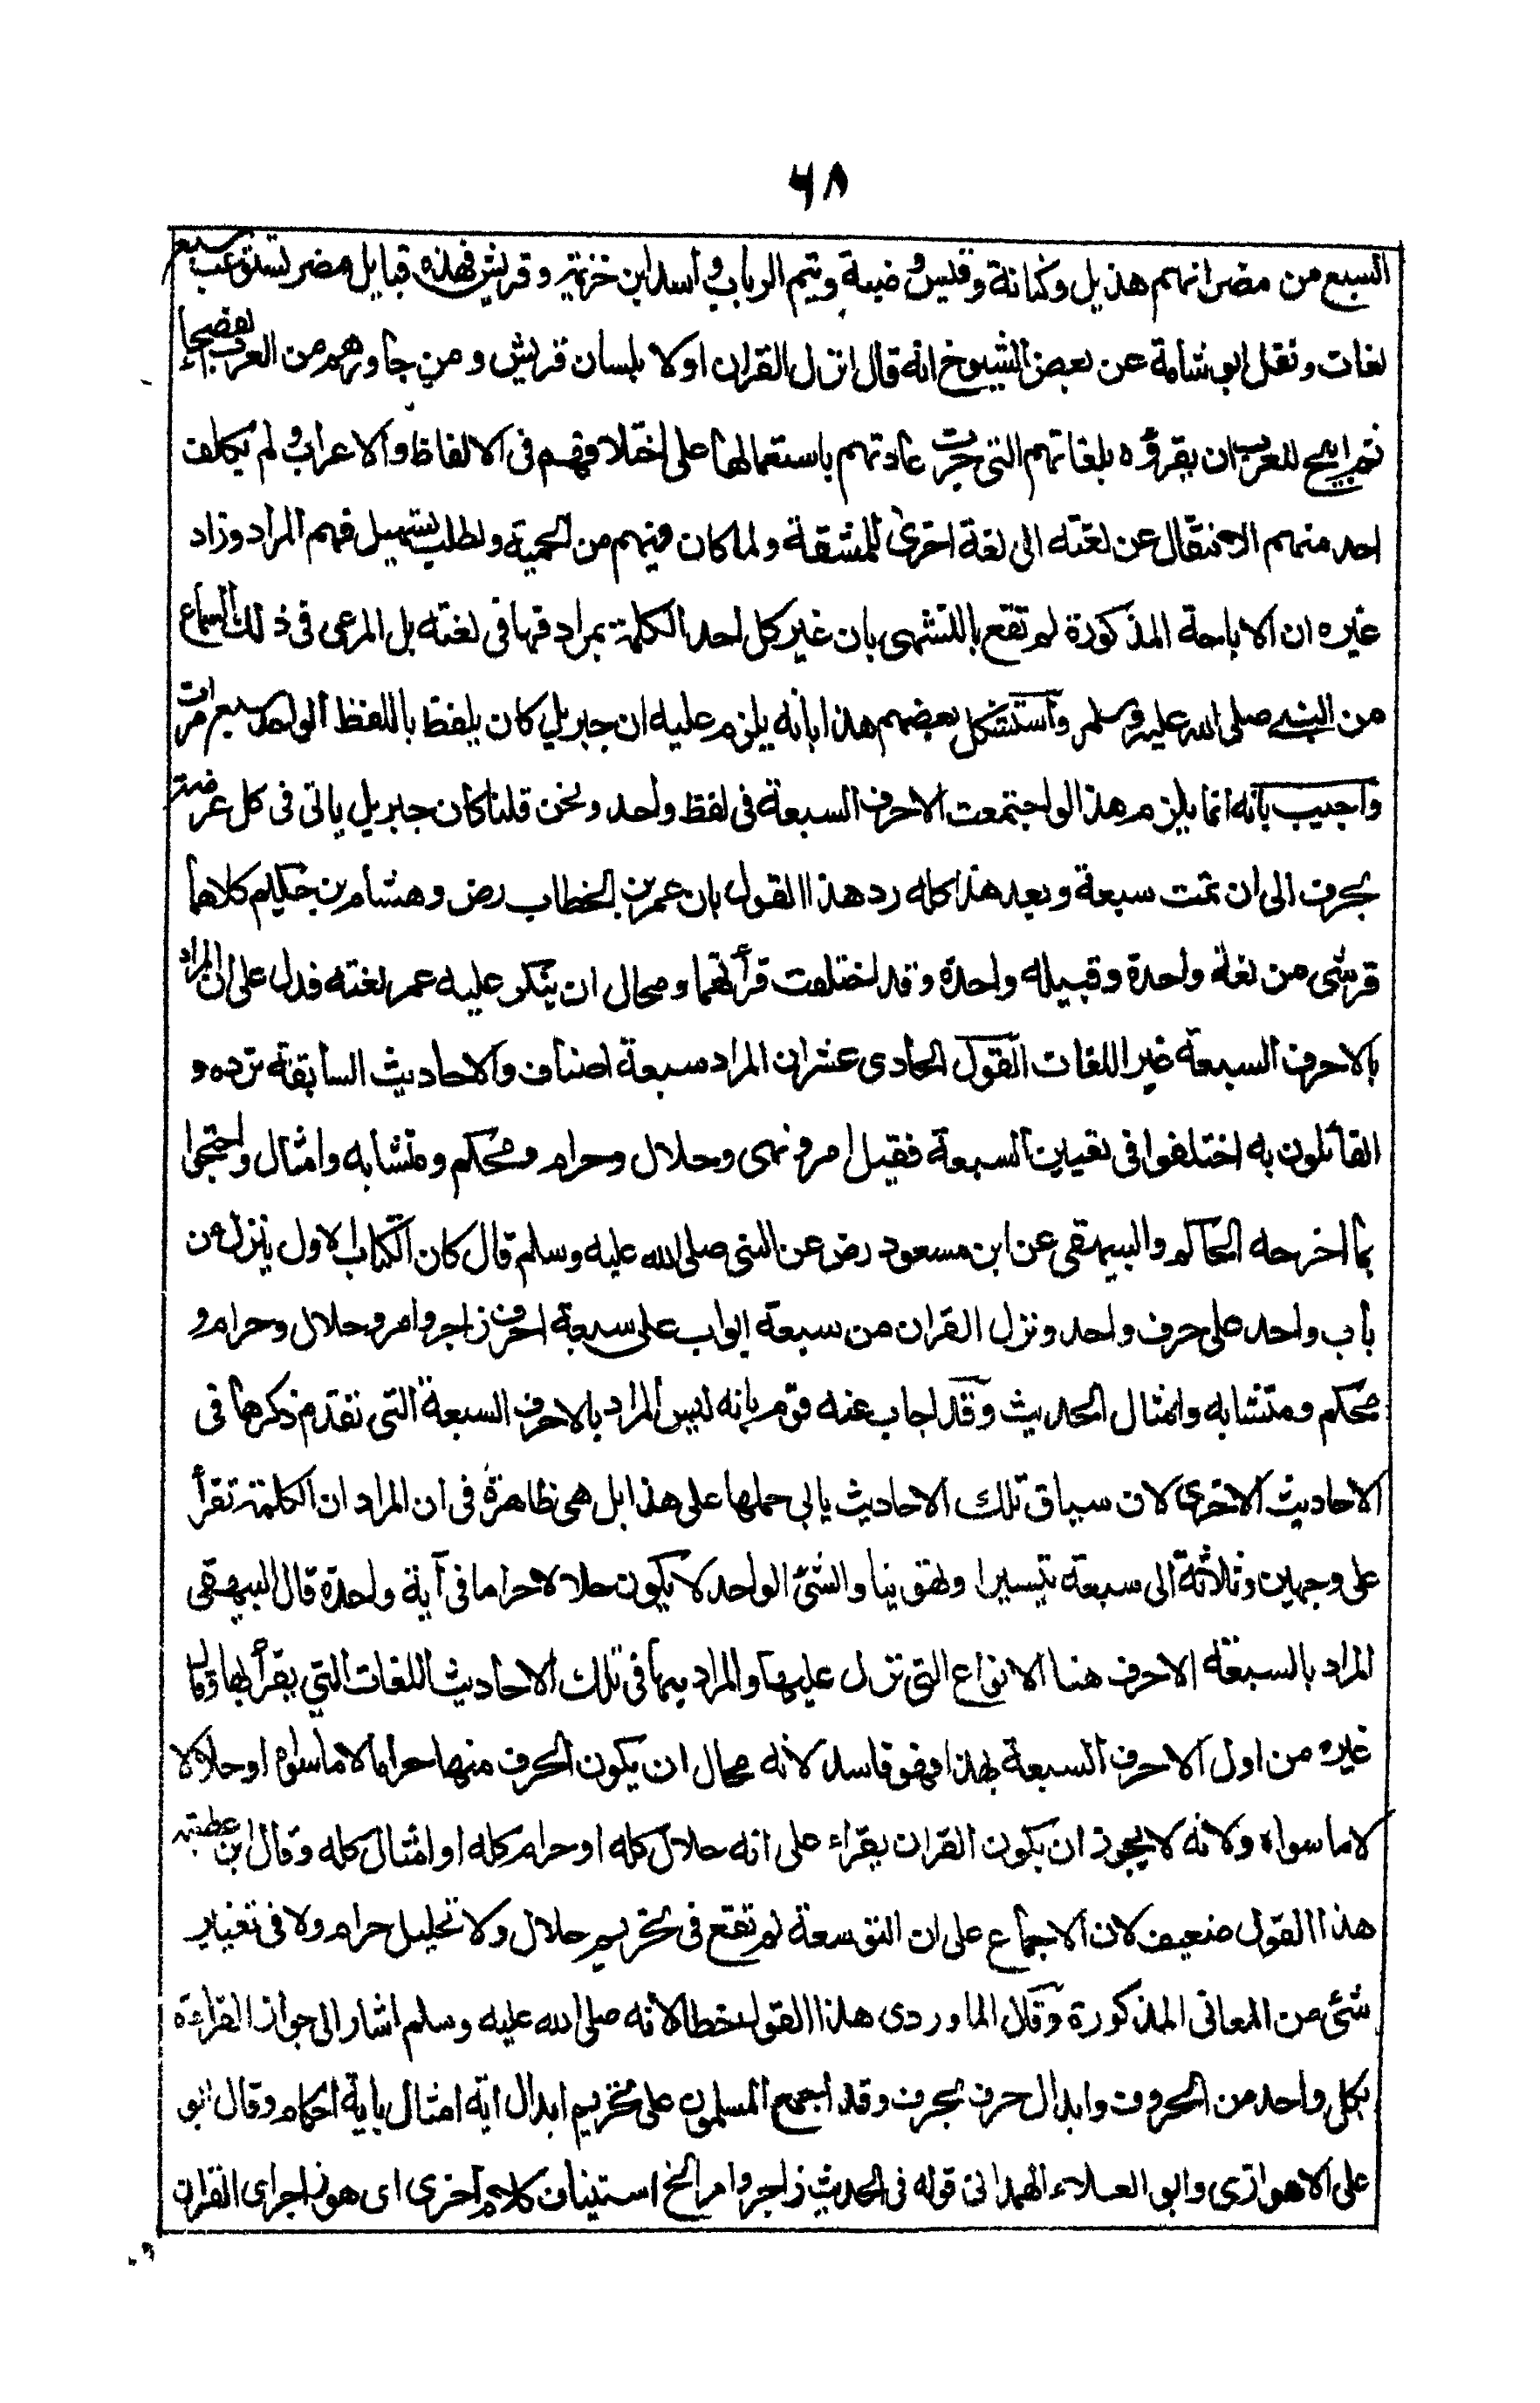 ٦٨
السبع من مضر انهم هذيل وكنانة وقيس وضبة وتيم الرباب واسد ابن خزيمة وقريش فهذه قبايل مضر تستوعب سبع
لغات ونقل ابو شامة عن بعض الشيوخ انه قال انزل القران اولا بلسان قريش ومن جاورهم من العرب الفصحاء
ثم ابيح للعرب ان يقرؤه بلغاتهم التي جرت عادتهم باستعمالها على اختلافهم في الالفاظ والاعراب ولم يكلف
احد منهم الانتقال عن لغته الى لغة اخرى للمشقة ولما كان فيهم من الحمية ولطلب تسهيل فهم المراد وزاد
غيره ان الاباحة المذكورة لم تقع بالتشهى بان غير كل احد الكلمة بمرادفها في لغته بل المرعى في ذلك السماع
من النبي صلى الله عليه وسلم واستشكل بعضهم هذا بانه يلزم عليه ان جبريل كان يلفظ باللفظ الواحد سبع مرات
واجيب بانه انما يلزم هذا لو اجتمعت الاحرف السبعة في لفظ واحد ونحن قلنا كان جبريل ياتى في كل عرضة
بحرف الى ان تمت سبعة وبعد هذا كله رد هذا القول بان عمر بن الخطاب رض وهشام بن حكيم كلاهما
قرشى من لغة واحدة وقبيله واحدة وقد اختلفت قرأتهما ومحال ان ينكر عليه عمر لغته فدل على ان المراد
بالاحرف السبعة غير اللغات القول الحادى عشر ان المراد سبعة اصناف والاحاديث السابقة ترده و
القائلون به اختلفوا في تعيين السبعة فقيل امر ونهى وحلال وحرام ومحكم ومتشابه وامثال واحتجوا
بما اخرجه الحاكم والبيهقى عن ابن مسعود رض عن النبى صلى الله عليه وسلم قال كان الكتاب الاول ينزل من
باب واحد على حرف واحد ونزل القران من سبعة ابواب على سبعة احرف زاجر وامر وحلال وحرام و
محكم ومتشابه وامثال الحديث وقد اجاب عنه قوم بانه ليس المراد بالاحرف السبعة التي تقدم ذكرها في
الاحاديث الاخرى لان سياق تلك الاحاديث يابى حملها على هذا بل هى ظاهرة في ان المراد ان الكلمة تقرأ
على وجهين وثلاثة الى سبعة تيسيرا وتهوينا والشئ الواحد لا يكون حلالا حراما في آية واحدة قال البيهقى
المراد بالسبعة الاحرف هنا الانواع التي نزل عليها والمراد بها في تلك الاحاديث اللغات التي يقرأ بها وقال
غيره من اول الاحرف السبعة بهذا فهو فاسد لانه محال ان يكون الحرف منها حراما لا ما سواه او حلالا
لا ما سواه ولانه لا يجوز ان يكون القران يقراء على انه حلال كله او حرام كله او امثال كله وقال ابن عطية
هذا القول ضعيف لان الاجماع على ان التوسعة لم تقع في تحريم حلال ولا تحليل حرام ولا في تغيير
شئ من المعانى المذكورة وقال الماوردى هذا القول خطا لانه صلى الله عليه وسلم اشار الى جواز القراءة
بكل واحد من الحروف وابدال حرف بحرف وقد اجمع المسلمون على تحريم ابدال اية امثال باية احكام وقال ابو
على الاهوازى وابو العلاء الهمدانى قوله في الحديث زاجر وامر الخ استيناف كلام آخرى اى هو زاجر اى القران